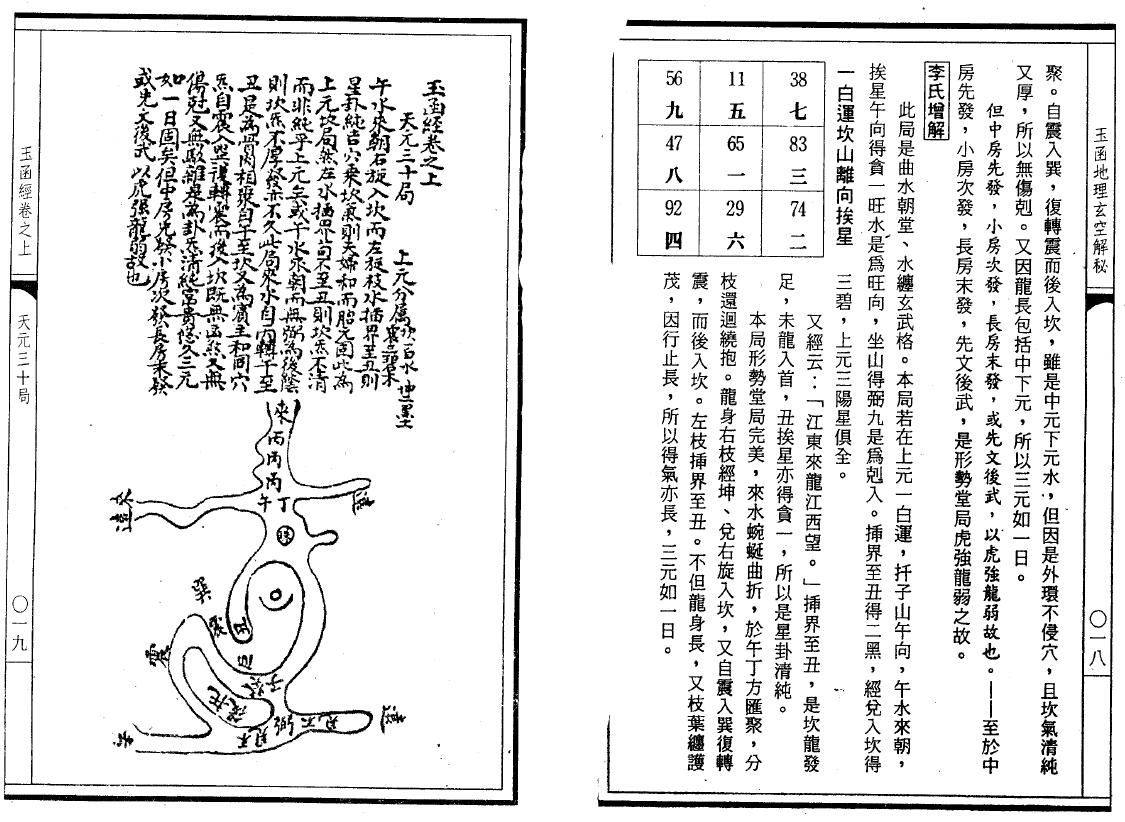 玉函地理玄空解秘
○一八
聚。自震入巽，復轉震而後入坎，雖是中元下元水，但因是外環不侵穴，且坎氣清純
又厚，所以無傷剋。又因龍長包括中下元，所以三元如一日。
但中房先發，小房次發，長房末發，或先文後武，以虎強龍弱故也。——至於中
房先發，小房次發，長房末發，先文後武，是形勢堂局虎強龍弱之故。
李氏增解
此局是曲水朝堂、水纏玄武格。本局若在上元一白運，扦子山午向，午水來朝，
挨星午向得貪一旺水是爲旺向，坐山得弼九是爲剋入。挿界至丑得二黑，經兌入坎得
三碧，上元三陽星俱全。
一白運坎山離向挨星
56 11 38
九 五 七
47 65 83
八 一 三
92 29 74
四 六 二
又經云：「江東來龍江西望。」挿界至丑，是坎龍發
足，未龍入首，丑挨星亦得貪一，所以是星卦清純。
本局形勢堂局完美，來水蜿蜒曲折，於午丁方匯聚，分
枝還迴繞抱。龍身右枝經坤、兌右旋入坎，又自震入巽復轉
震，而後入坎。左枝挿界至丑。不但龍身長，又枝葉纏護
茂，因行止長，所以得氣亦長，三元如一日。
玉函經卷之上
天元三十局 上元分屬坎一白水 震三碧木 坤二黑土
午水來朝右旋入坎而左旋枝水插界至丑則
星卦純吉穴乘坎氣則夫婦和而胎元固此為
上元坎局然左水插界苟不至丑則坎炁不清
而非純乎上元矣或午水來朝而無弼為後蔭
則坎炁不厚發亦不久此局來水自丙轉午至
丑是為骨肉相聚自午至坎又為賓主和同穴
炁自震入巽復轉震而後入坎既無凶煞又無
傷剋又無駁雜是為卦炁清純富貴悠久三元
如一日固矣但中房先發小房次發長房末發
或先文後武以虎强龍弱故也
來
丙
丙
丙
午丁
遠
巽
震
丑
震
癸
子
遠
去
玉函經卷之上
天元三十局
○一九